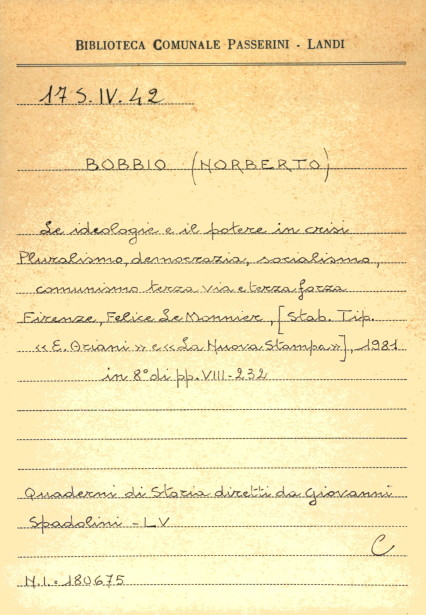 BIBLIOTECA COMUNALE PASSERINI - LANDI
17 S.IV.42
BOBBIO (NORBERTO)
Le ideologie e il potere in crisi
Pluralismo, democrazia, socialismo,
comunismo terza via e terza forza
Firenze, Felice Le Monnier, [Stab. Tip.
«E. Ariani» e «La Nuova Stampa»], 1981
in 8° di pp. VIII-232
Quaderni di Storia diretti da Giovanni
Spadolini - LV
C
N.I. 180675